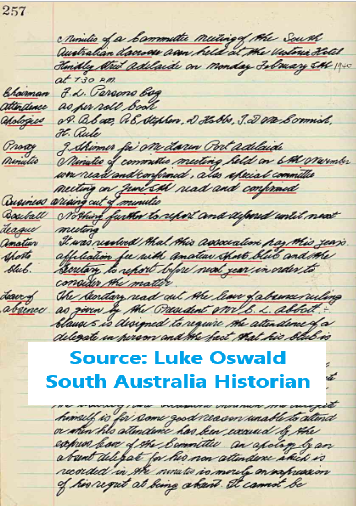 257
Minutes of a Committee Meeting of the South
Australian Lacrosse Assn held at the Victoria Hotel
Hindley Street Adelaide on Monday February 5th 1940
at 7.30 P.M.
Chairman F. L. Parsons Esq
Attendance as per roll book
Apologies Stephen, D Hobbs, J. D McCormick,
H. Rule
Proxy J Skinner for McLaren Port Adelaide
Minutes Minutes of committee meeting held on 6th November
were read and confirmed, also special committee
meeting on read and confirmed
Business arising out of minutes
Baseball Nothing further to report and deferred until next
League meeting
Amateur It was resolved that this association pay this years
Sports affiliation fee with Amateur Sports club and the
Club. Secretary to report before next year in order to
consider the matter
Leave of The Secretary read out the leave of absence ruling
absence as given by the President Mr E. L. Abbott :-
is designed to require the attendance of a
delegate in person and the fact that his club is
Source: Luke Oswald
South Australia Historian
himself is for some good reason unable to attend
or when his attendance has been excused by the
express leave of the Committee an apology by an
absent delegate for his non attendance which is
recorded in the minutes is merely an expression
of his regret at being absent. It cannot be